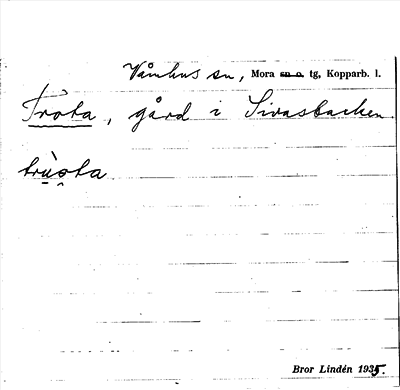 Våmhus sn, Mora sn o. tg, Kopparb. l.
Trota, gård i Sivasbacken.
trùo̯ta.
Bror Lindén 1935.